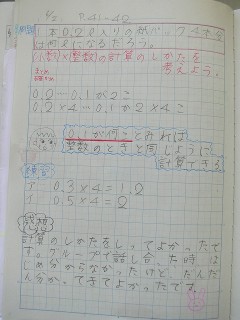 P.41~42
問題
1本0.2L入りの紙パック4本分
は何Lになるだろう。
小数×整数の計算のしかたを
考えよう。
0.2…0.1が2こ
0.2×4…0.1が2×4こ
0.1が何ことみれば
整数のときと同じように
計算できる
練習
ア 0.3×4=1.2
イ 0.5×4=2
感想
計算のしかたをしってよかったで
す。グループで話し合った時は
じめ分からなかったけど、だんだ
ん分かってきてよかったです。